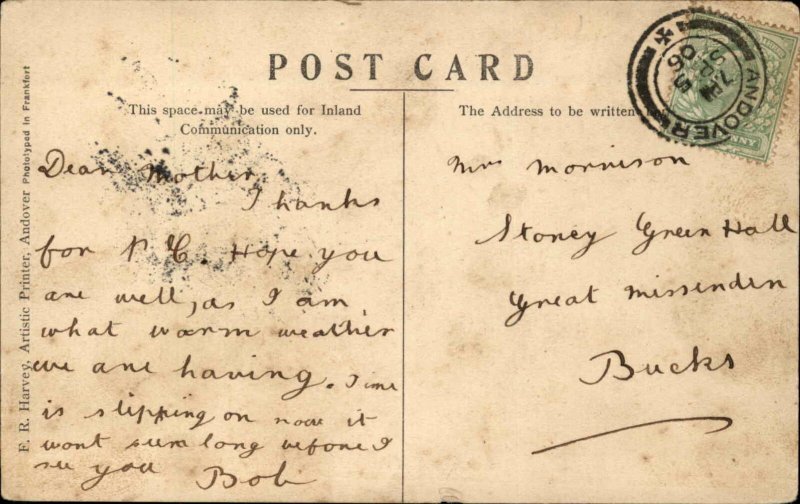 POST CARD
This space may be used for Inland
Communication only.
The Address to be written
F. R. Harvey, Artistic Printer, Andover Phototyped in Frankfort
Dear Mother,
Thanks
for P C. Hope you
are well, as I am
what warm weather
we are having. Time
is slipping on now it
wont seem long before I
see you Bob
Mrs Morrison
Stoney Green Hall
Great Missenden
Bucks
ANDOVER